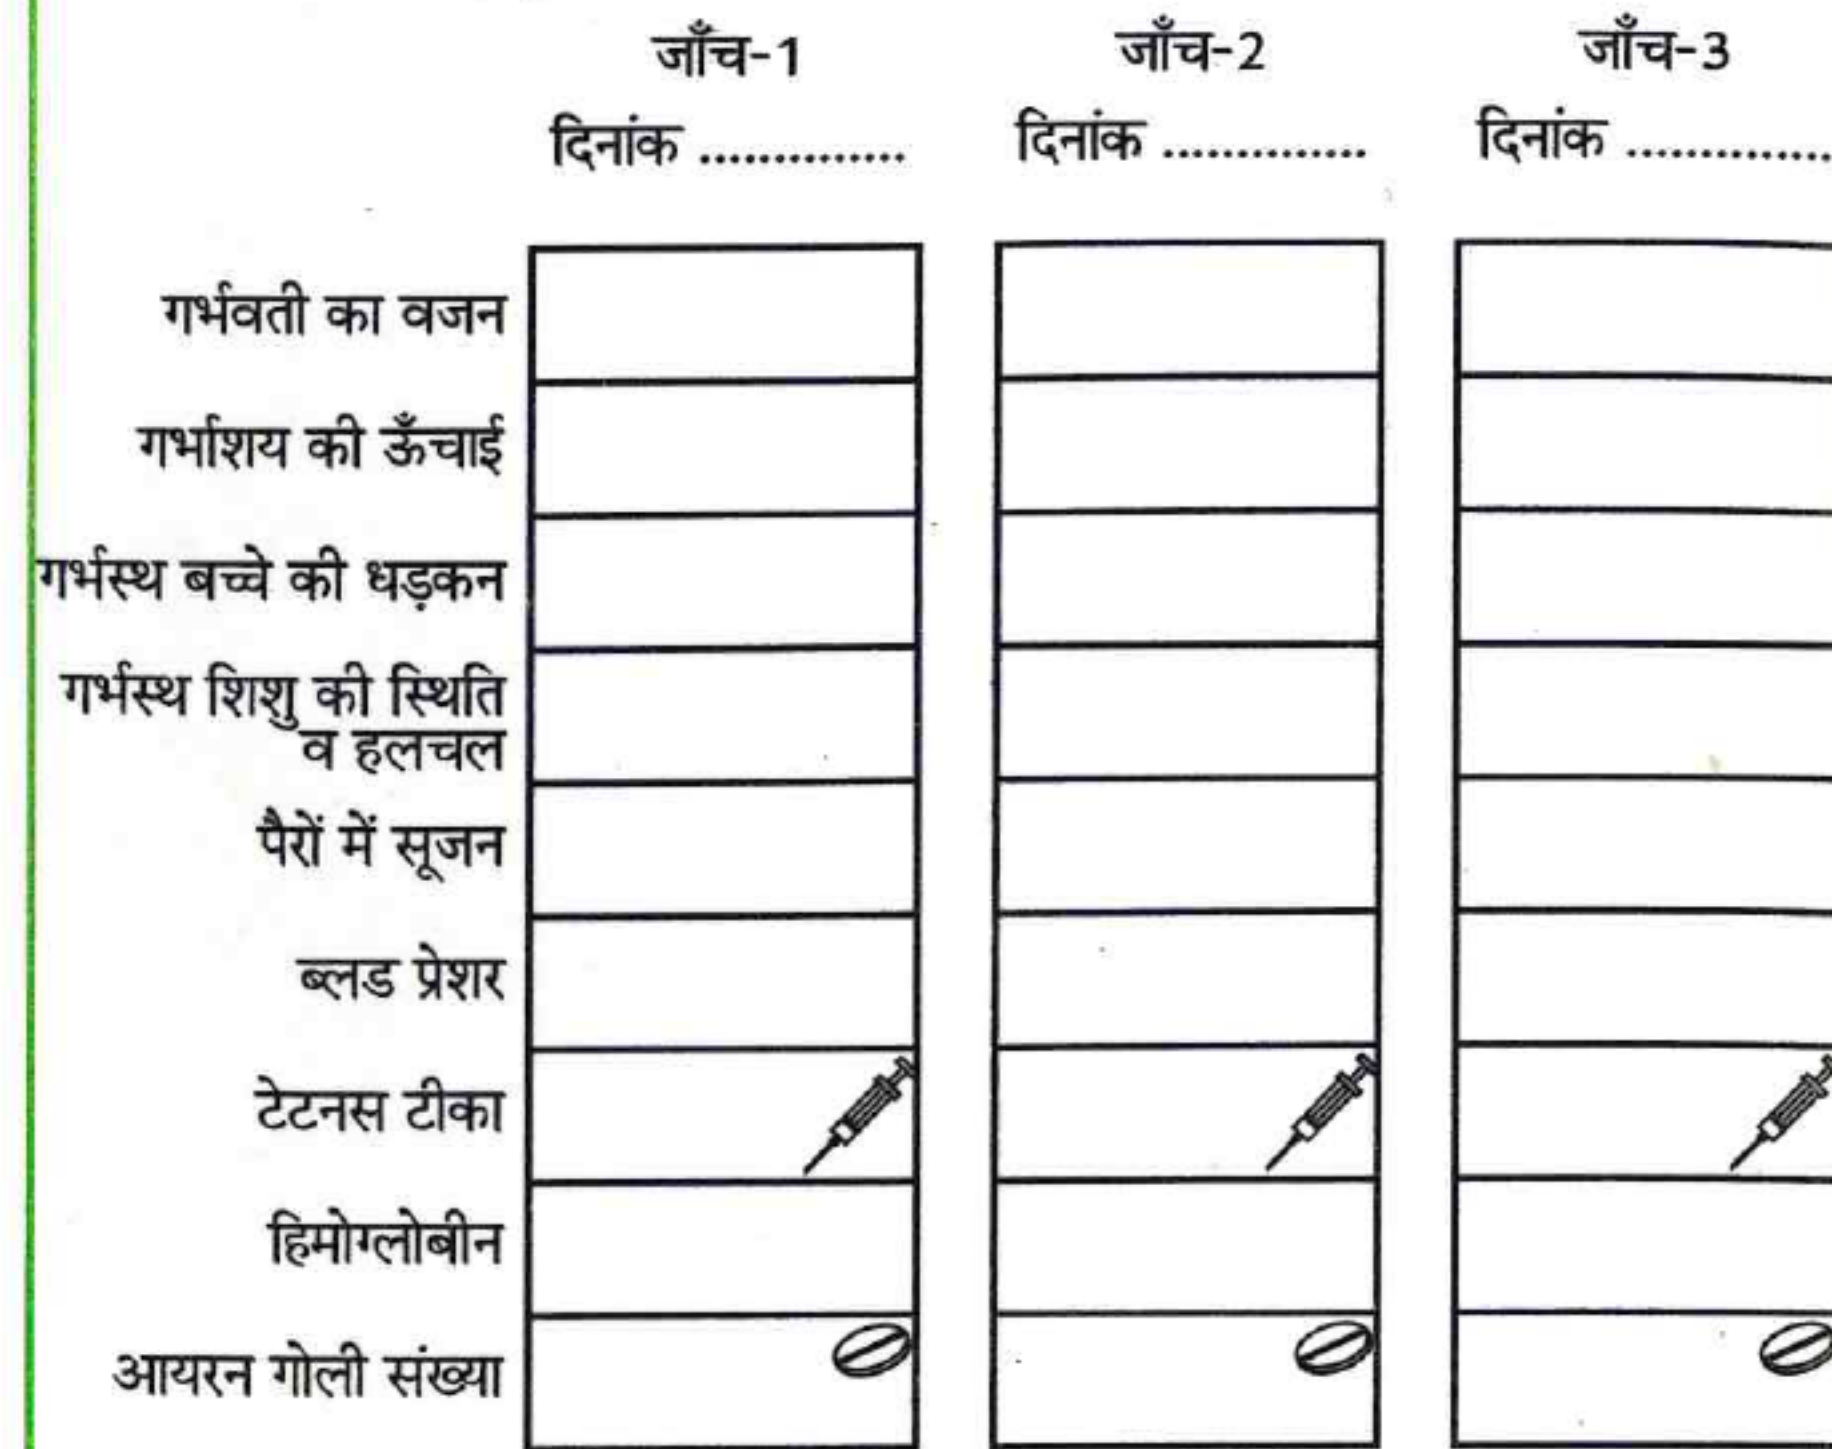 जाँच-1 जाँच-2 जाँच-3
दिनांक .............. दिनांक .............. दिनांक ..............
गर्भवती का वजन
गर्भाशय की ऊँचाई
गर्भस्थ बच्चे की धड़कन
गर्भस्थ शिशु की स्थिति
व हलचल
पैरों में सूजन
ब्लड प्रेशर
टेटनस टीका
हिमोग्लोबीन
आयरन गोली संख्या